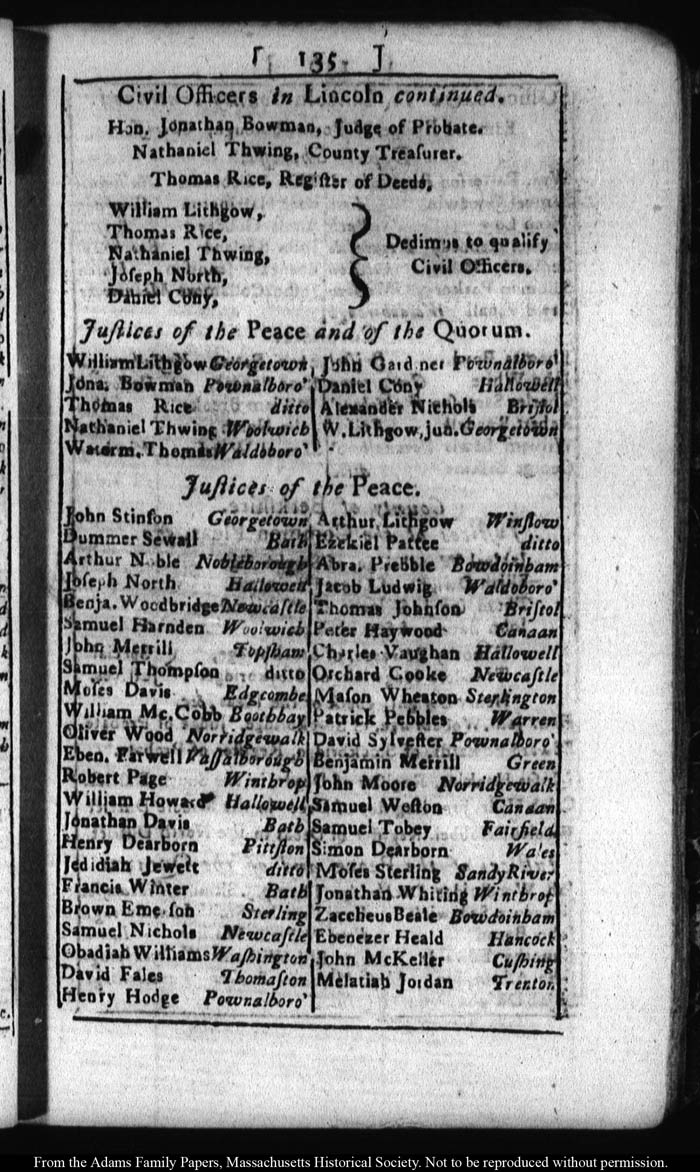 [ 135. ]
Civil Officers in Lincoln continued.
Hon. Jonathan Bowman, Judge of Probate.
Nathaniel Thwing, County Treaſurer.
Thomas Rice, Regiſter of Deeds,
William Lithgow,
Thomas Rice,
Nathaniel Thwing,
Joſeph North,
Daniel Cony,
Dedimus to qualify
Civil Officers.
Juſtices of the Peace and of the Quorum.
William Lithgow Georgetown,
Jona. Bowman Pownalboro'
Thomas Rice ditto
Nathaniel Thwing Woolwich
Waterm. Thomas Waldoboro'
John Gardner Pownalboro'
Daniel Cony Hallowell
Alexander Nichols Briſtol
W. Lithgow, jun. Georgetown
Juſtices of the Peace.
John Stinſon Georgetown
Dummer Sewall Bath
Arthur Noble Nobleborough
Joſeph North Hallowell
Benja. Woodbridge Newcaſtle
Samuel Harnden Woolwich
John Merrill Topſham
Samuel Thompſon ditto
Moſes Davis Edgcombe
William Mc. Cobb Boothbay
Oliver Wood Norridgewalk
Eben. Farwell Vaſſalborough
Robert Page Winthrop
William Howard Hallowell
Jonathan Davis Bath
Henry Dearborn Pittſton
Jedidiah Jewett ditto
Francis Winter Bath
Brown Emerſon Sterling
Samuel Nichols Newcaſtle
Obadiah Williams Waſhington
David Fales Thomaſton
Henry Hodge Pownalboro'
Arthur Lithgow Winſlow
Ezekiel Pattee ditto
Abra. Prebble Bowdoinham
Jacob Ludwig Waldoboro'
Thomas Johnſon Briſtol
Peter Haywood Canaan
Charles Vaughan Hallowell
Orchard Cooke Newcaſtle
Maſon Wheaton Sterlington
Patrick Pebbles Warren
David Sylveſter Pownalboro'
Benjamin Merrill Green
John Moore Norridgewalk
Samuel Weſton Canaan
Samuel Tobey Fairfield
Simon Dearborn Wales
Moſes Sterling Sandy River
Jonathan Whiting Winthrop
Zaccheus Beale Bowdoinham
Ebenezer Heald Hancock
John McKeller Cuſhing
Melatiah Jordan Trenton
From the Adams Family Papers, Massachusetts Historical Society. Not to be reproduced without permission.